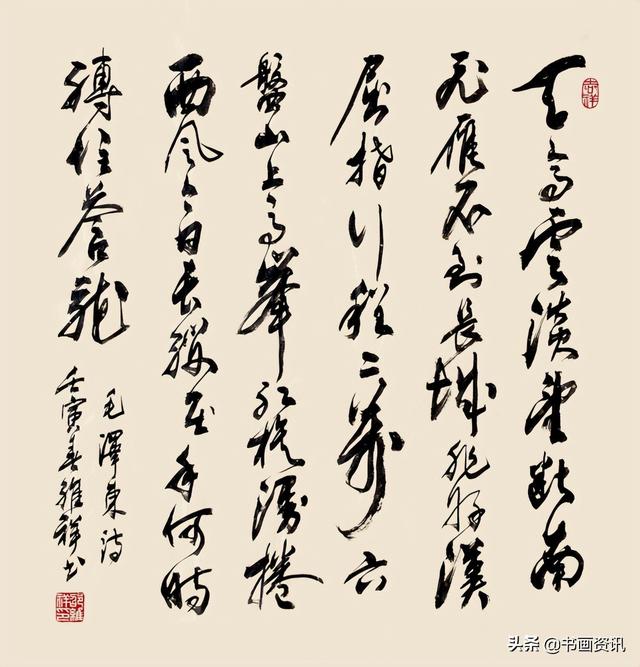 天高雲淡望斷南
飛雁不到長城非好漢
屈指行程二萬六
盤山上高峯紅旗漫捲
西風今日長纓在手何時
縛住蒼龍
毛澤東詩
壬寅春維祥書
吉祥
头条 @书画资讯